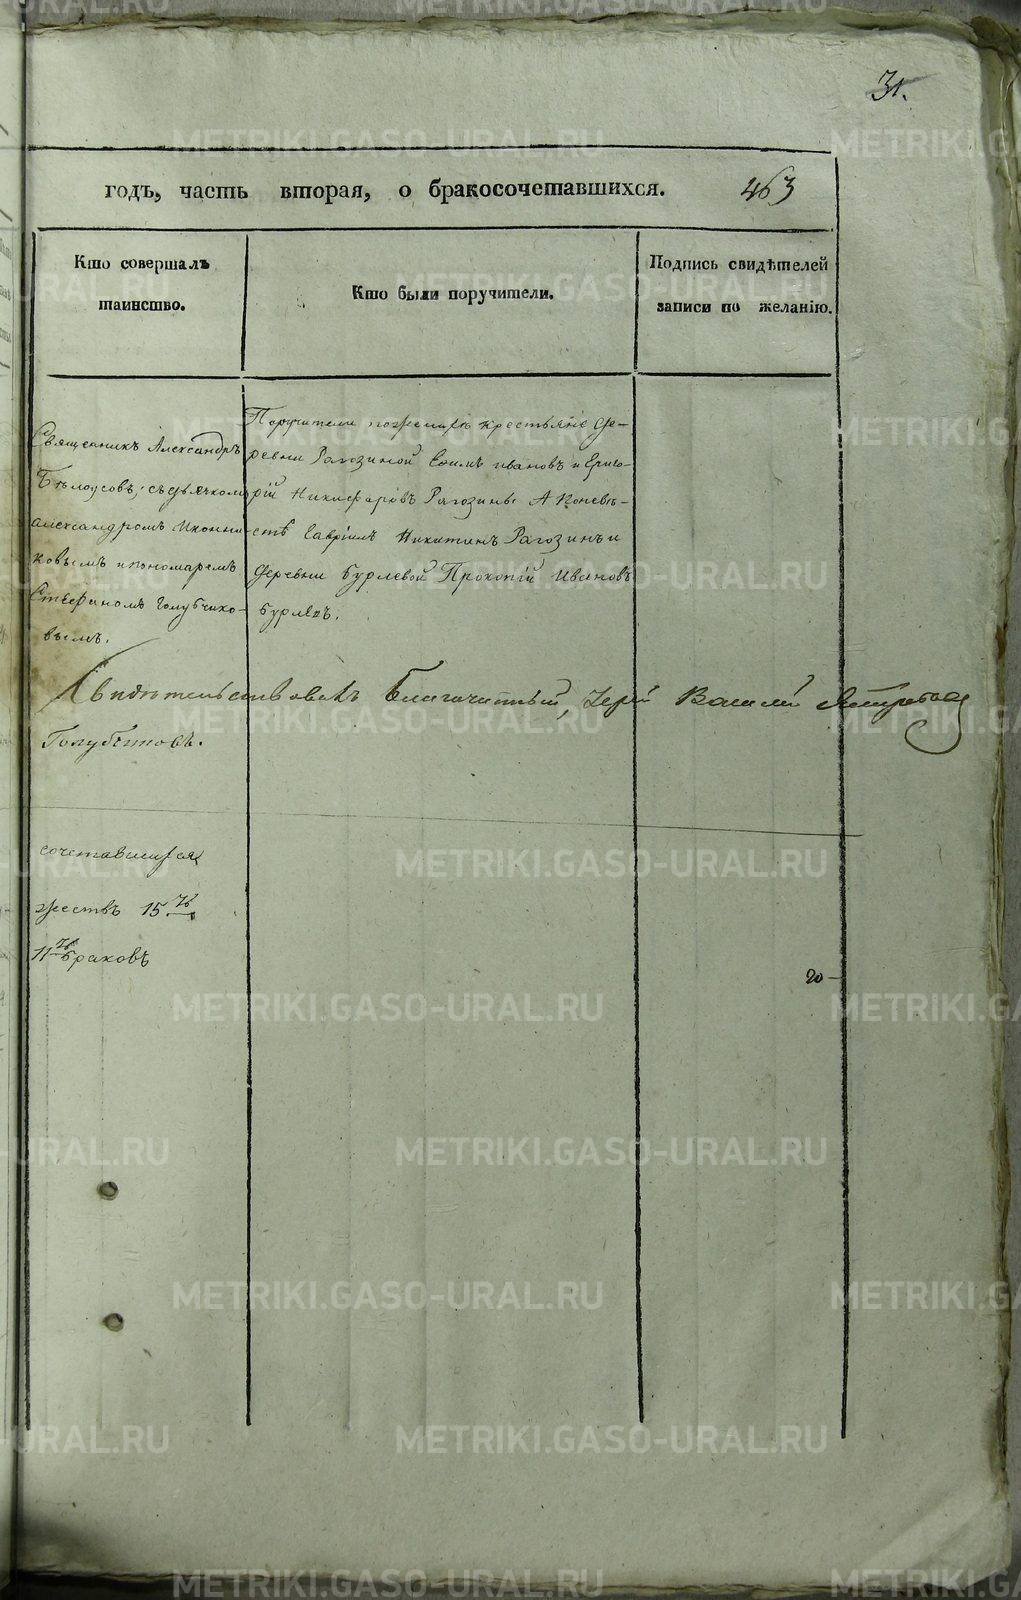 31.
годъ, часть вторая, о бракосочетавшихся. 463
Кто совершалъ таинство.
Кто были поручители.
Подпись свидѣтелей записи по желанію.
Священникъ Александръ
Бѣлоусовъ, съ дьячкомъ
александромъ Иконни-
ковымъ и пономаремъ
Стефаномъ Голубчико-
вымъ.
Поручители по женихѣ крестьяне де-
ревни Рагозиной Ефимъ ивановъ и Григо-
рій Никифоровъ Рагозины А по невѣ-
стѣ Гавріилъ Никитинъ Рагозинъ и
деревни Бурлевой Прокопій Ивановъ
Бурлевъ.
Свидѣтельствовалъ Благочинный, Іерей Василій
сочетавшихся
жествъ 15.
11 Браковъ
20
METRIKI.GASO-URAL.RU